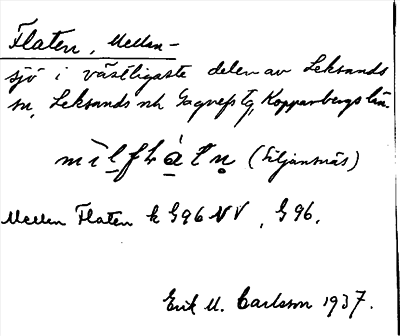 Flaten, Mellan-
sjö i västligaste delen av Leksands
sn, Leksands o Gagnefs tg, Kopparbergs län.
(Siljansnäs)
Mellan Flaten k G96 NV, G 96.
Erik M. Carlsson 1937.